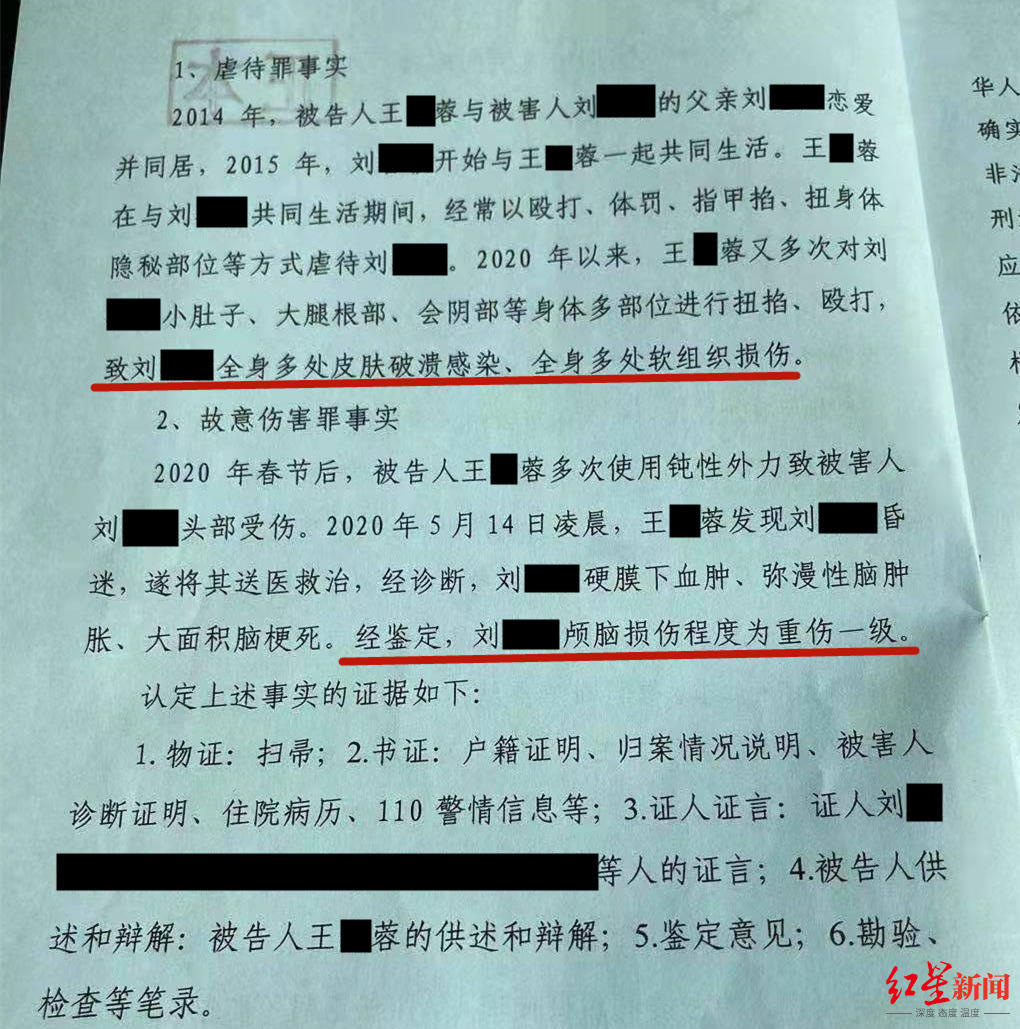 1、虐待罪事实
2014 年，被告人王 蓉与被害人刘 的父亲刘 恋爱
并同居，2015 年，刘 开始与王 蓉一起共同生活。王 蓉
在与刘 共同生活期间，经常以殴打、体罚、指甲掐、扭身体
隐秘部位等方式虐待刘 。2020 年以来，王 蓉又多次对刘
小肚子、大腿根部、会阴部等身体多部位进行扭掐、殴打，
致刘 全身多处皮肤破溃感染、全身多处软组织损伤。
2、故意伤害罪事实
2020 年春节后，被告人王 蓉多次使用钝性外力致被害人
刘 头部受伤。2020年5月14日凌晨，王 蓉发现刘 昏
迷，遂将其送医救治，经诊断，刘 硬膜下血肿、弥漫性脑肿
胀、大面积脑梗死。经鉴定，刘 颅脑损伤程度为重伤一级。
认定上述事实的证据如下：
1. 物证：扫帚；2.书证：户籍证明、归案情况说明、被害人
诊断证明、住院病历、110 警情信息等；3.证人证言：证人刘
等人的证言；4.被告人供
述和辩解：被告人王 蓉的供述和辩解；5.鉴定意见；6.勘验、
检查等笔录。
华人
确实
非法
刑
应
依
红星新闻
深度 态度 温度